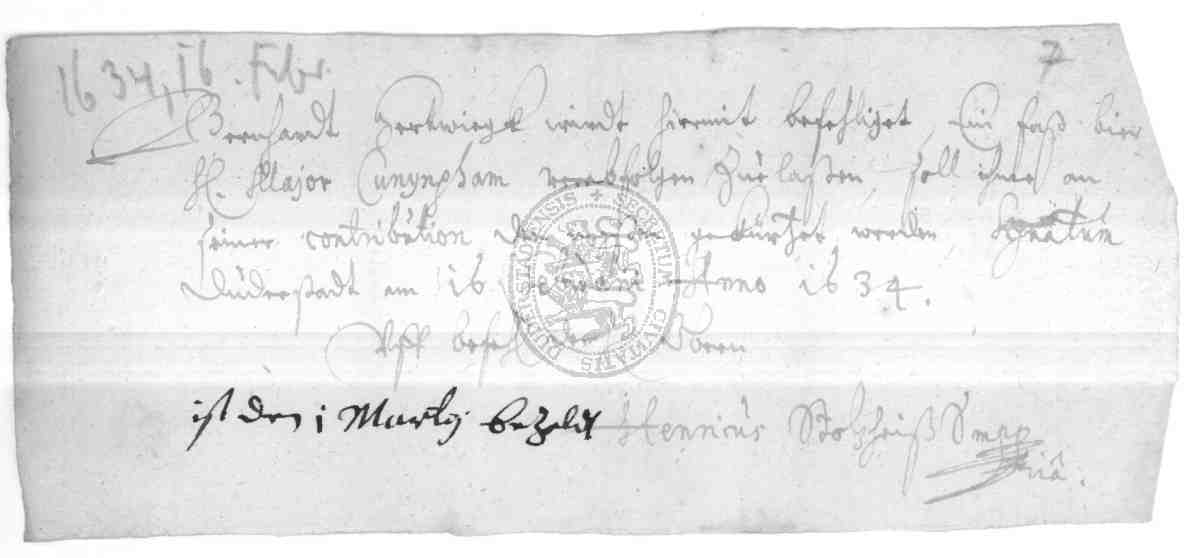 1634, 16. Febr.
7
Bernhardt Hertwiegk wirdt hiermit befehliget, Ein faß bier
H. Major Cunynpham verabfolgen Zue laßen, soll ihme an
seiner contribution gekürtzet werden, Signatum
Duderstadt am 16 Februarii Anno 1634.
Uff befehl der Herrn
ist den i Martij beZaldt
Henricus
SECRETUM CIVITATIS DUDERSTODENSIS